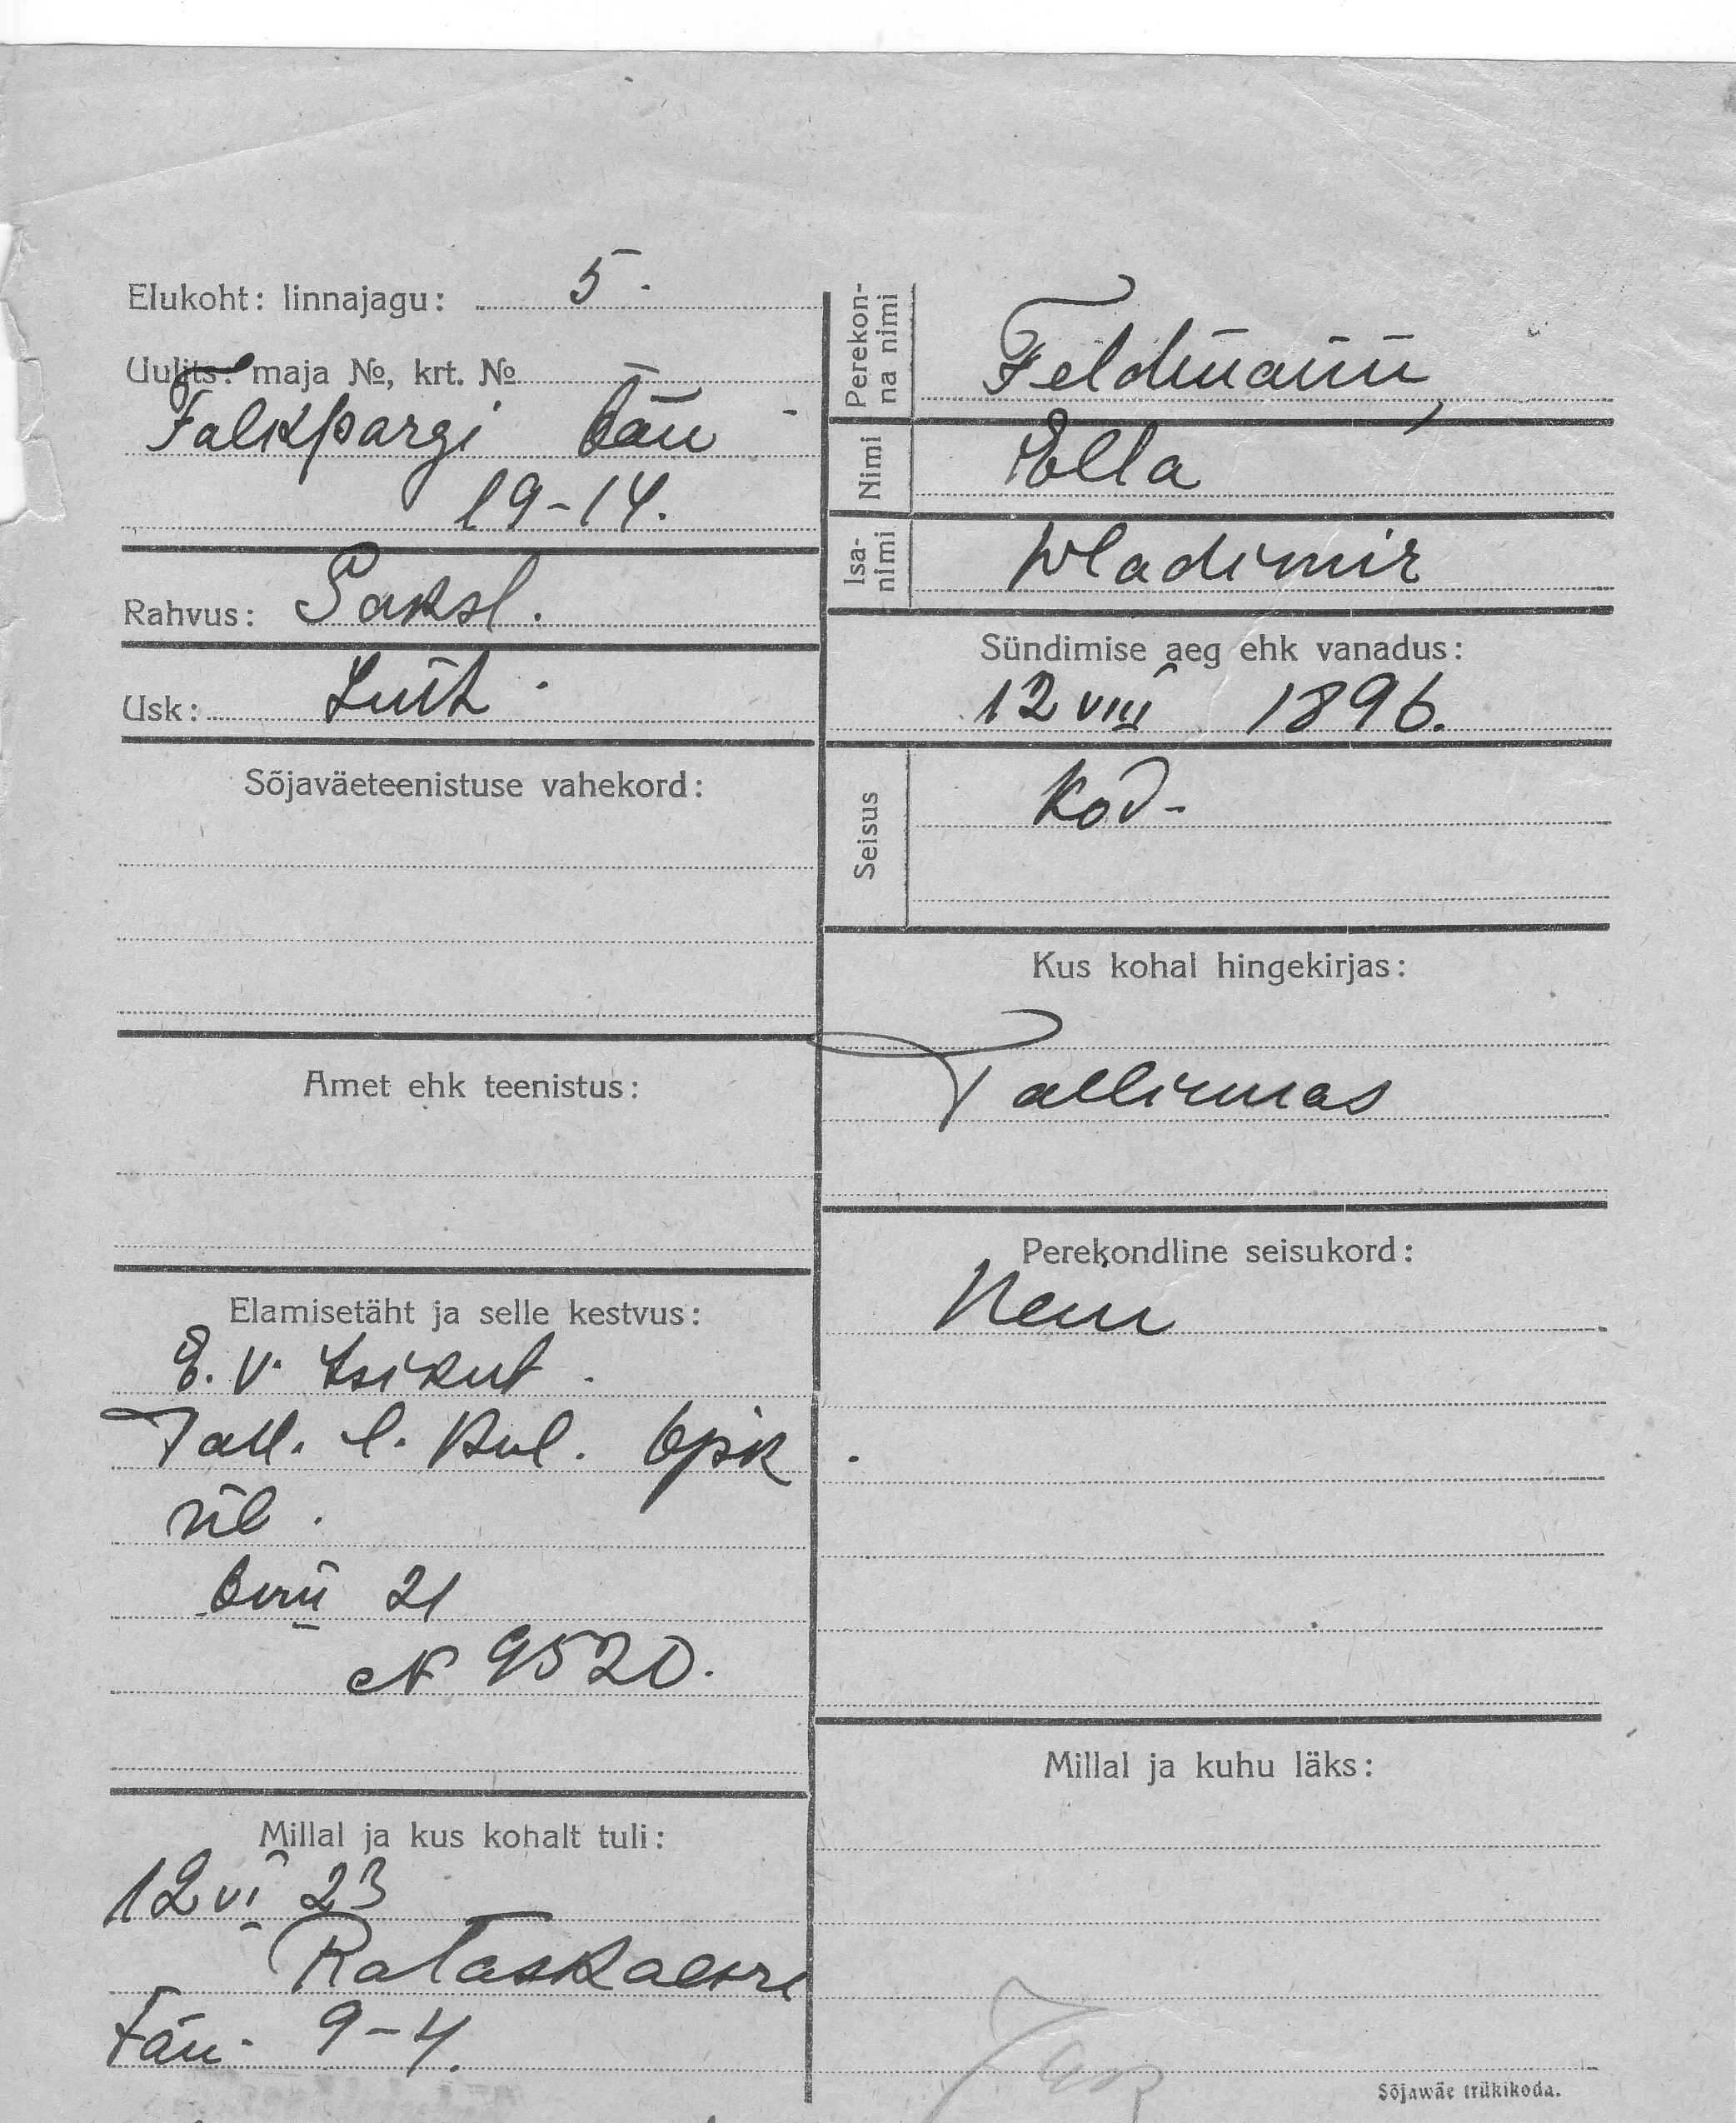 Elukoht: linnajagu: 5.
Uulits: maja №, krt. №
Falkpargi tän -
19-14.
Rahvus: Saksl.
Usk: Luth.
Sõjaväeteenistuse vahekord:
Amet ehk teenistus:
Elamisetäht ja selle kestvus:
E. V. Isikut.
Tall. l. Kul.
üle.
21
N 9520.
Millal ja kus kohalt tuli:
12 VI 23
Rataskaevu
tän. 9-4.
Perekonna nimi
Feldmann,
Nimi
Ella
Isanimi
Wladimir
Sündimise aeg ehk vanadus:
12 VIII 1896.
Seisus
Kod-
Kus kohal hingekirjas:
Tallinnas
Perekondline seisukord:
Neiu
Millal ja kuhu läks:
Sõjawäe trükikoda.